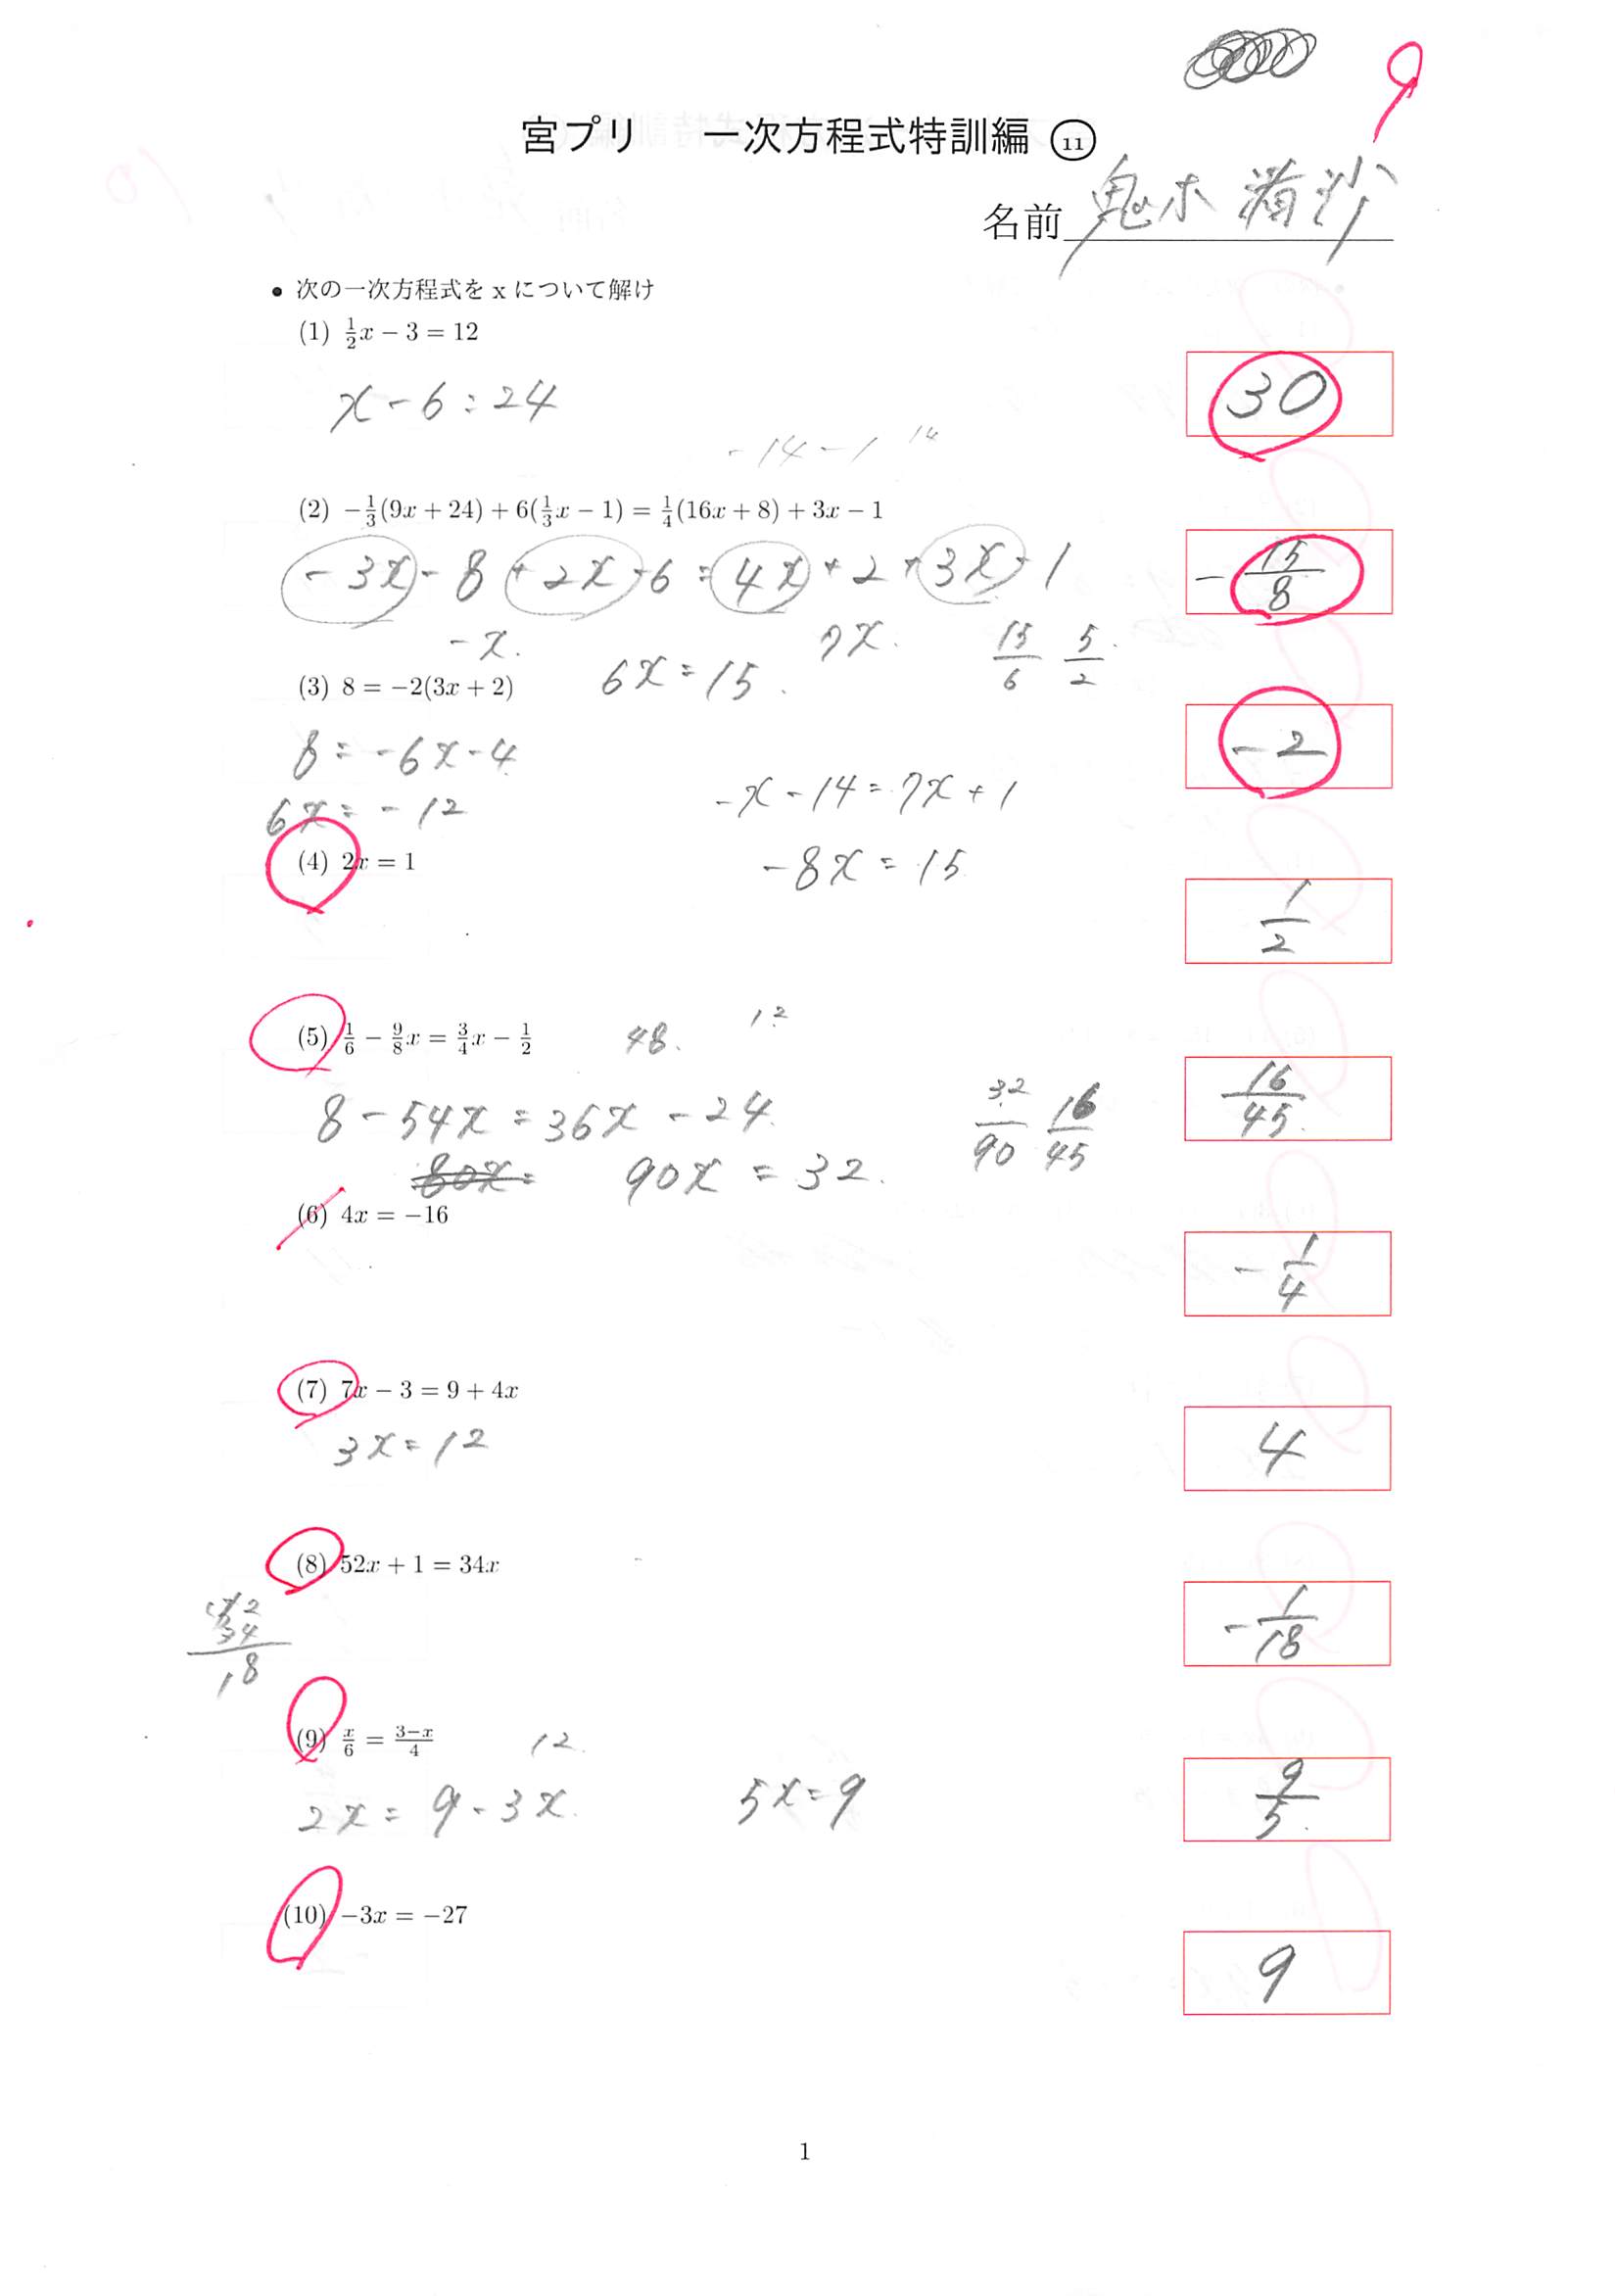 9
宮プリ 一次方程式特訓編 ⑪
名前 鬼木
• 次の一次方程式を x について解け
(1) 1/2x − 3 = 12
x - 6 = 24
30
-14 -1 14
(2) −1/3(9x + 24) + 6(1/3x − 1) = 1/4(16x + 8) + 3x − 1
-3x - 8 + 2x - 6 = 4x + 2 + 3x - 1
-15/8
-x. 7x.
6x = 15. 15/6 5/2
(3) 8 = −2(3x + 2)
8 = -6x - 4
-2
6x = -12
-x - 14 = 7x + 1
-8x = 15
(4) 2x = 1
1/2
(5) 1/6 − 9/8x = 3/4x − 1/2
48. 12
8 - 54x = 36x - 24
32/90 16/45
16/45
80x =
90x = 32.
(6) 4x = −16
-1/4
(7) 7x − 3 = 9 + 4x
3x = 12
4
(8) 52x + 1 = 34x
52
34
18
-1/18
(9) x/6 = 3−x/4
12.
2x = 9 - 3x.
5x = 9
9/5
(10) −3x = −27
9
1